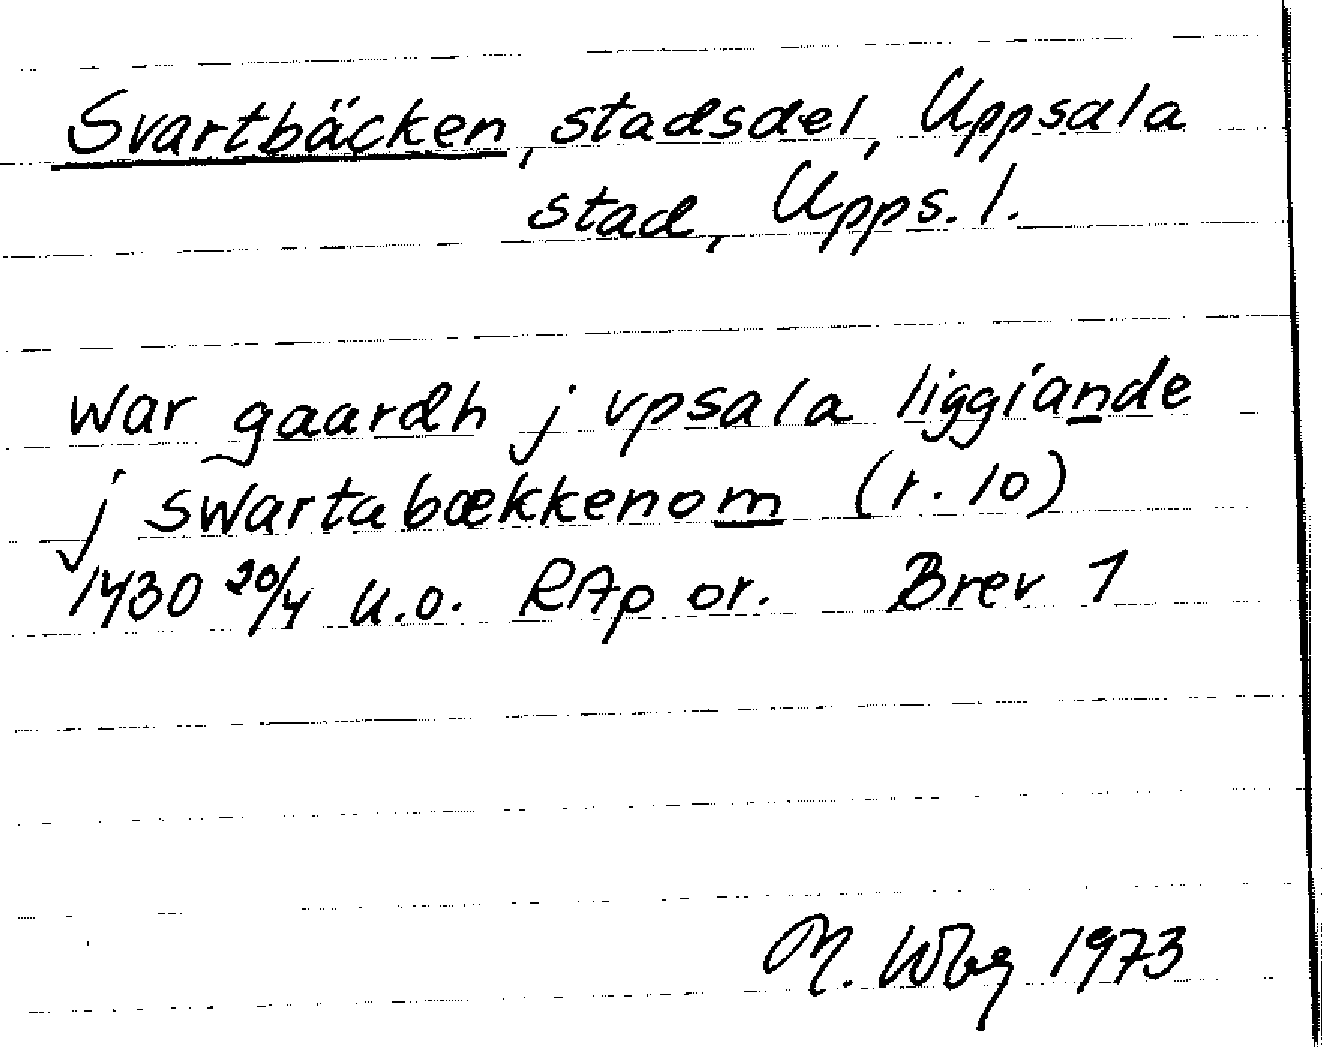 Svartbäcken, stadsdel, Uppsala
stad, Upps. l.
war gaardh j vpsala liggiande
j swartabækkenom (r. 10)
1430 20/4 u.o. RAp or. Brev 1
M. Wbg 1973